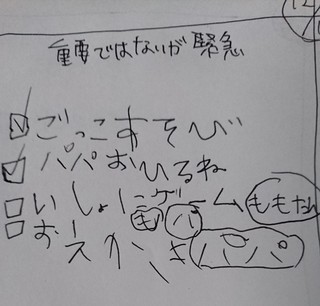 重要ではないが緊急
☑ごっこすそび
☑パパおひるね
□いしょにゲーム ももたん
も パ
□おえかき パパ